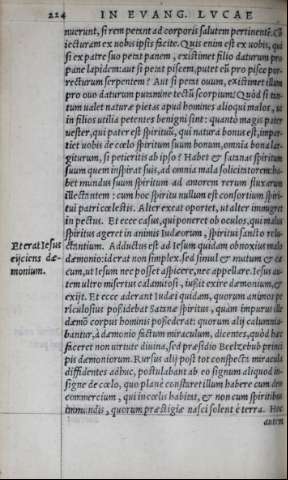 224 IN EVANG. LVCAE
nuerunt, si rem petant ad corporis salutem pertinentẽ. Cõ
iecturam ex vobis ipsis facite. Quis enim est ex vobis, qui
si ex patre suo petat panem, existimet filio daturum pro
pane lapidem: aut si petat piscem, putet eũ pro pisce por-
recturum serpentem? Aut si petat ouum, existimet illum
pro ouo daturum puximine tectũ scorpium? Quòd si tan
tum ualet naturæ pietas apud homines alioqui malos, ut
in filios utilia petentes benigni sint: quantò magis pater
vester, qui pater est spirituũ, qui natura bonus est, imper-
tiet vobis de cœlo spiritum suum bonum, omnia bona lar
giturum, si petieritis ab ipso? Habet & Satanas spiritum
suum quem inspirat suis, ad omnia mala solicitatorem: ha
bet mundus suum spiritum ad amorem rerum fluxarum
illectantem: cum hoc spiritu nullum est consortium spiri-
tui patris cœlestis. Alter exeat oportet, ut alter immigret
in pectus. Et ecce casus, qui poneret ob oculos, qui malus
spiritus ageret in animis Iudæorum, spiritui sancto relu-
Et erat Iesus
eijciens dæ-
monium.
ctantium. Adductus est ad Iesum quidam obnoxius malo
dæmonio: id erat non simplex, sed simul & mutum & cæ
cum, ut Iesum nec posset aspicere, nec appellare. Iesus au-
tem ultro misertus calamitosi, iussit exire dæmonium, &
exijt. Et ecce aderant Iudæi quidam, quorum animos pe
riculosius possidebat Satanæ spiritus, quàm impurus ille
dæmõ corpus hominis possederat: quorum alij calumnia-
bantur, à dæmonio factum miraculum, dicentes, quòd hæc
faceret non virtute diuina, sed præsidio Beelzebub princi
pis dæmoniorum. Rursus alij post tot conspecta miracula
diffidentes adhuc, postulabant ab eo signum aliquod in-
signe de cœlo, quo planè constaret illum habere cum deo
commercium, qui in cœlis habitat, & non cum spiritibus
immundis, quorum præstigiæ nasci solent è terra. Hoc
autem